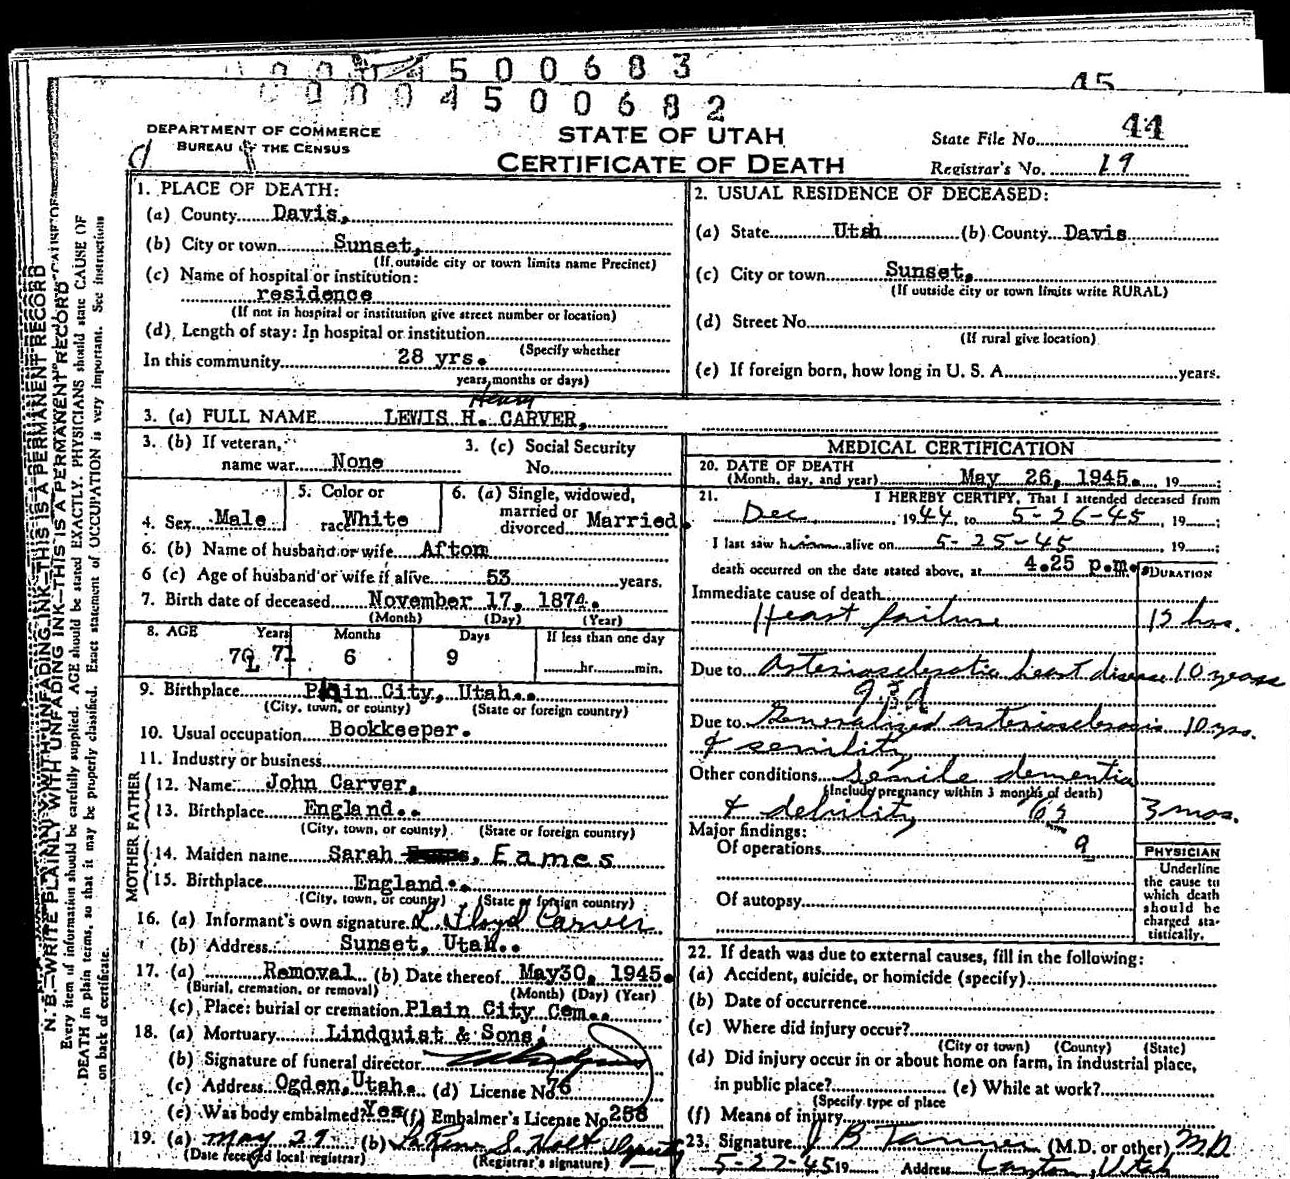 0004500683
0004500682
45
DEPARTMENT OF COMMERCE
BUREAU OF THE CENSUS
STATE OF UTAH
CERTIFICATE OF DEATH
State File No. 44
Registrar's No. 19
N. B.—WRITE PLAINLY WITH UNFADING INK—THIS IS A PERMANENT RECORD
Every item of information should be carefully supplied. AGE should be stated EXACTLY. PHYSICIANS should state CAUSE OF
DEATH in plain terms, so that it may be properly classified. Exact statement of OCCUPATION is very important. See instructions
on back of certificate.
1. PLACE OF DEATH:
(a) County Davis,
(b) City or town Sunset,
(If outside city or town limits name Precinct)
(c) Name of hospital or institution:
residence
(If not in hospital or institution give street number or location)
(d) Length of stay: In hospital or institution
(Specify whether
In this community 28 yrs.
years, months or days)
2. USUAL RESIDENCE OF DECEASED:
(a) State Utah (b) County Davis
(c) City or town Sunset,
(If outside city or town limits write RURAL)
(d) Street No.
(If rural give location)
(e) If foreign born, how long in U. S. A. years.
Henry
3. (a) FULL NAME LEWIS H. CARVER,
3. (b) If veteran, name war None
3. (c) Social Security No.
4. Sex Male
5. Color or race White
6. (a) Single, widowed, married or divorced Married.
6. (b) Name of husband or wife Afton
6 (c) Age of husband or wife if alive 53 years.
7. Birth date of deceased November 17, 1874.
(Month) (Day) (Year)
8. AGE Years Months Days If less than one day
70 71 6 9 hr. min.
9. Birthplace Plain City, Utah..
(City, town, or county) (State or foreign country)
10. Usual occupation Bookkeeper.
11. Industry or business
FATHER
12. Name John Carver,
13. Birthplace England..
(City, town, or county) (State or foreign country)
MOTHER
14. Maiden name Sarah , Eames
15. Birthplace England..
(City, town, or county) (State or foreign country)
16. (a) Informant's own signature L. Floyd Carver
(b) Address Sunset, Utah..
17. (a) Removal (b) Date thereof May30, 1945.
(Burial, cremation, or removal) (Month) (Day) (Year)
(c) Place: burial or cremation Plain City Cem..
18. (a) Mortuary Lindquist & Sons.
(b) Signature of funeral director
(c) Address Ogden, Utah. (d) License No. 76
(e) Was body embalmed? Yes (f) Embalmer's License No. 258
19. (a) May 29 (b) LaRene S. Holt Deputy
(Date received local registrar) (Registrar's signature)
MEDICAL CERTIFICATION
20. DATE OF DEATH
(Month, day, and year) May 26, 1945. 19
21. I HEREBY CERTIFY, That I attended deceased from
Dec. , 1944, to 5-26-45, 19
I last saw him alive on 5-25-45, 19
death occurred on the date stated above, at 4.25 p.m. DURATION
Immediate cause of death
Heart failure 12 hrs.
Due to Arteriosclerotic heart disease 10 years
93d
Due to Generalized arteriosclerosis 10 yrs.
& senility
Other conditions Senile dementia
(Include pregnancy within 3 months of death)
& debility 3 mos.
Major findings:
Of operations 9
Of autopsy
PHYSICIAN
Underline
the cause to
which death
should be
charged sta-
tistically.
22. If death was due to external causes, fill in the following:
(a) Accident, suicide, or homicide (specify)
(b) Date of occurrence
(c) Where did injury occur?
(City or town) (County) (State)
(d) Did injury occur in or about home on farm, in industrial place,
in public place? (e) While at work?
(Specify type of place
(f) Means of injury
23. Signature J B Tanner (M.D. or other) M.D.
5-27-45 19 Address Layton, Utah